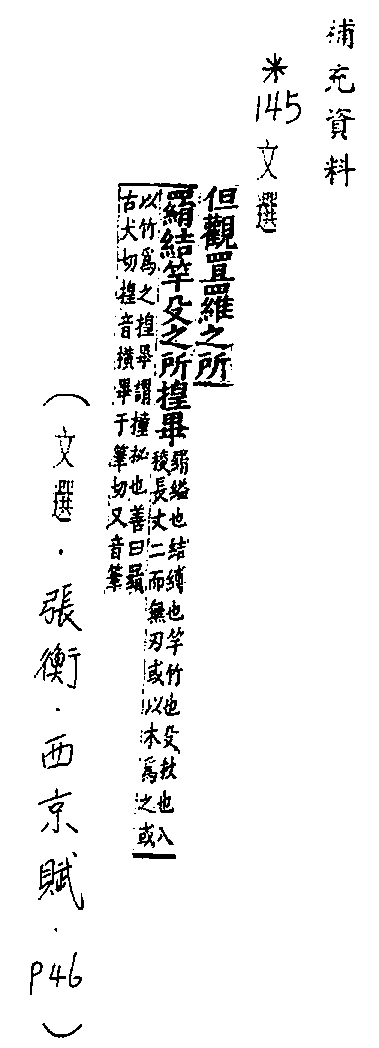 補充資料
*145文選
但觀罝羅之所
羂結竿殳之所揘畢
羂縊也結縛也竿竹也殳杖也八
稜長丈二而無刃或以木爲之或
以竹爲之揘畢謂撞柲也善曰羂
古犬切揘音橫畢于筆切又音筆
（文選．張衡．西京賦．P46）